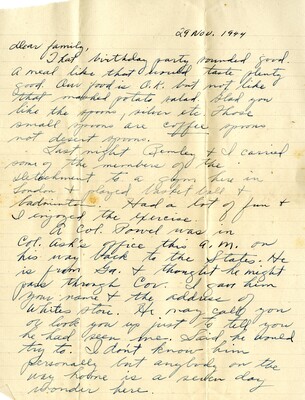 29 Nov. 1944
Dear family,
That birthday party sounded good.
A meal like that would taste plenty
good. Our food is O.K. but not like
that mashed potato salad. Glad you
like the spoons, silver etc. Those
small spoons are coffee spoons
not desert spoons.
Last night & I carried
some of the members of the
detachment to a gym here in
London & played basket ball &
badminton. Had a lot of fun &
I enjoyed the exercise.
A Col. Towel was in
Col. Ask's office this A.M. on
his way back to the States. He
is from Ga. & thought he might
pass through Cov. I gave him
your name & the address of
Whites store. He may call you
or look you up just to tell you
he had seen me. Said he would
try to. I don't know him
personally but anybody on the
way home is a seven day
wonder here.